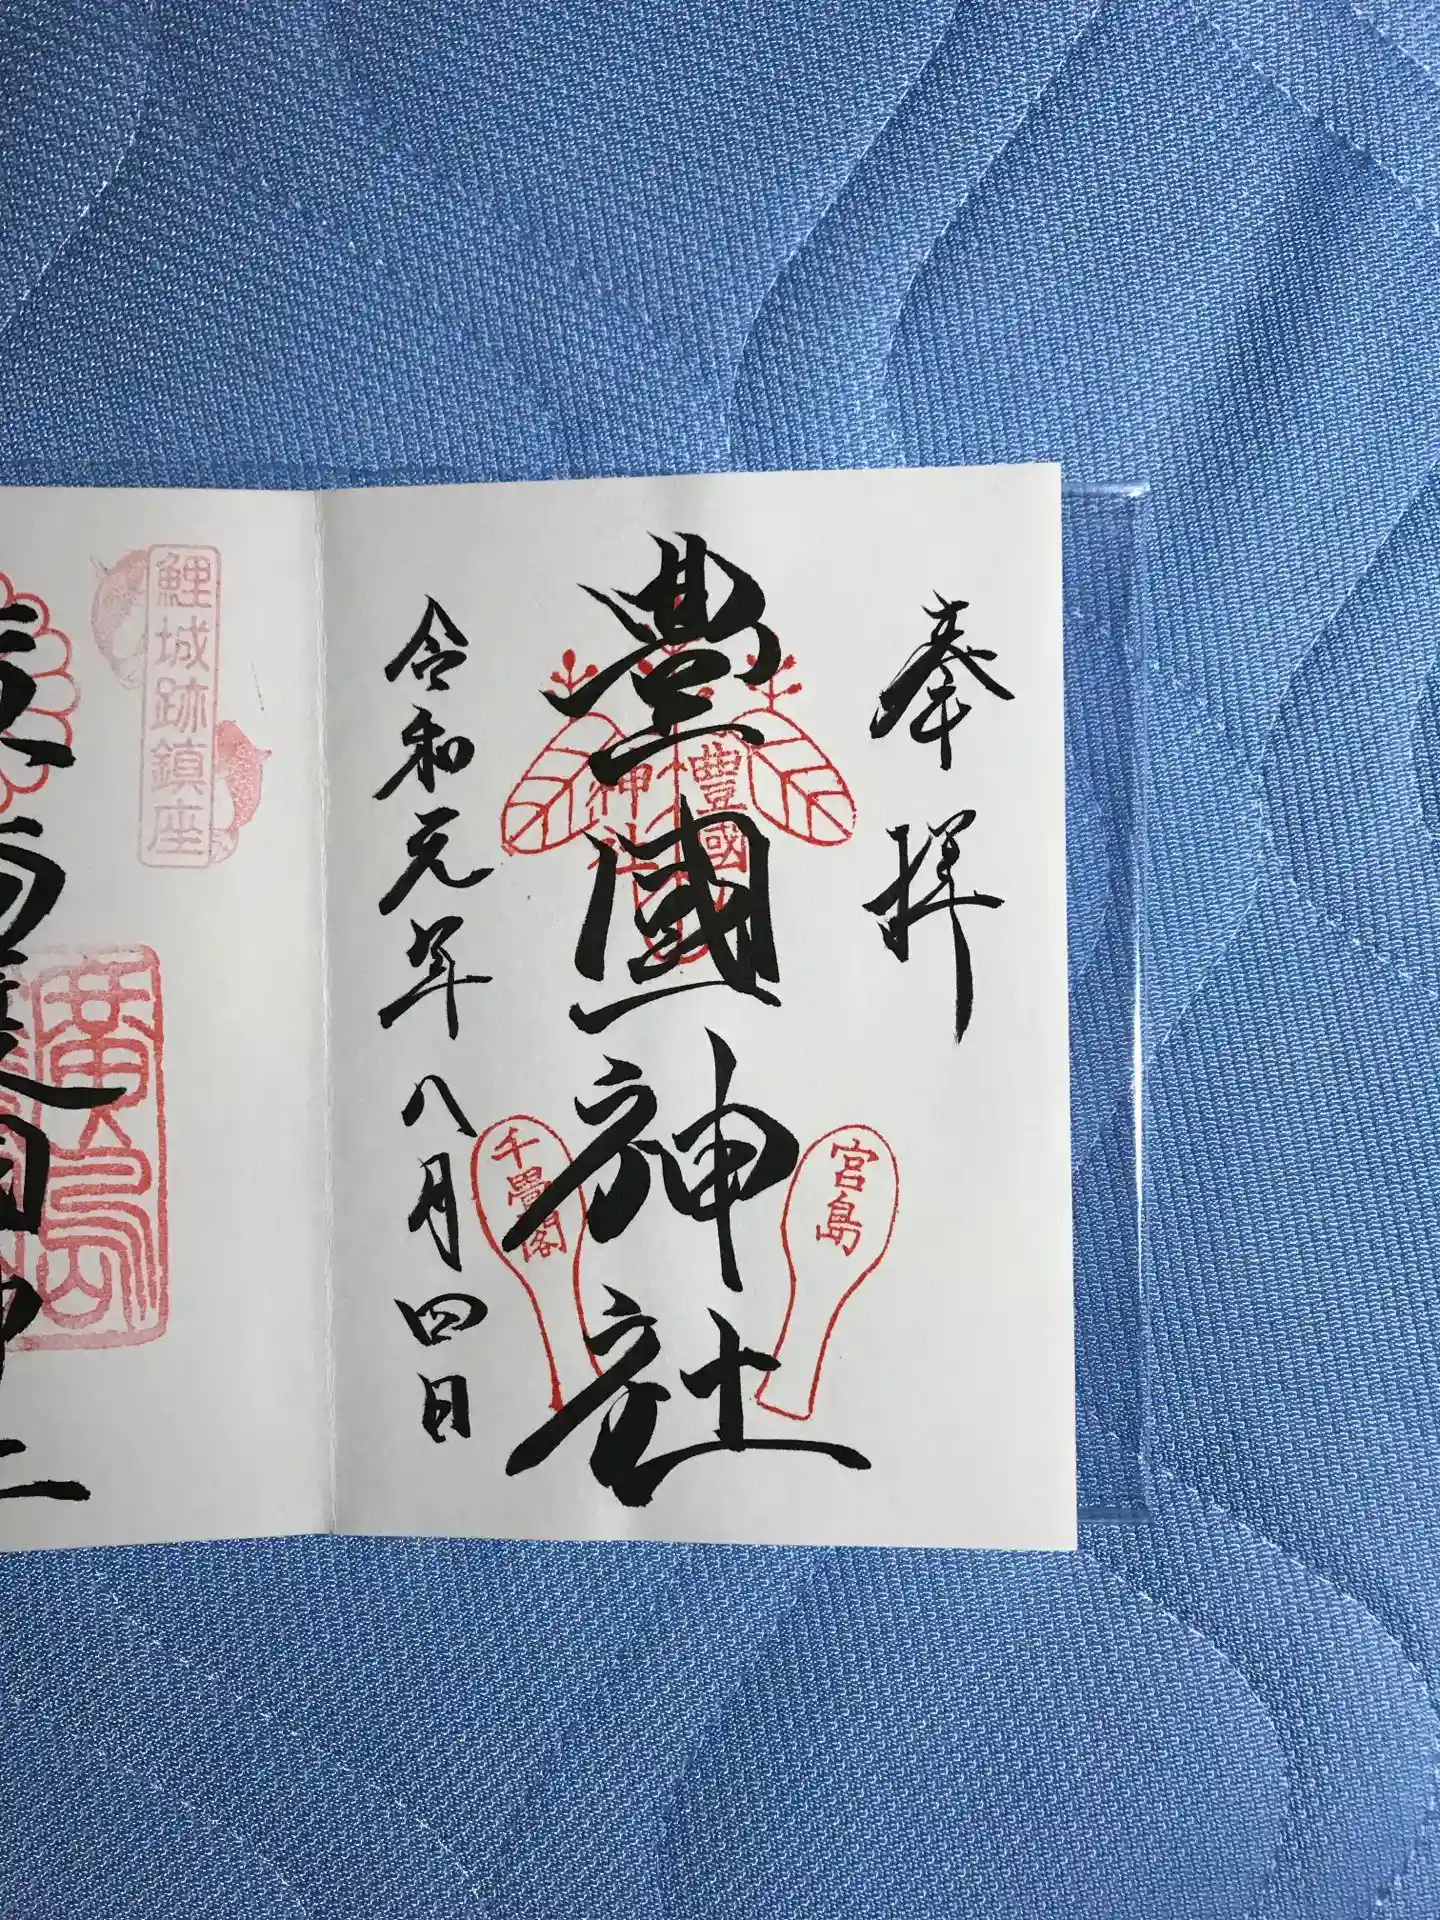 奉拝
豊國神社
豊國
神社
宮島
千畳閣
令和元年八月四日
鯉城跡鎮座
廣島